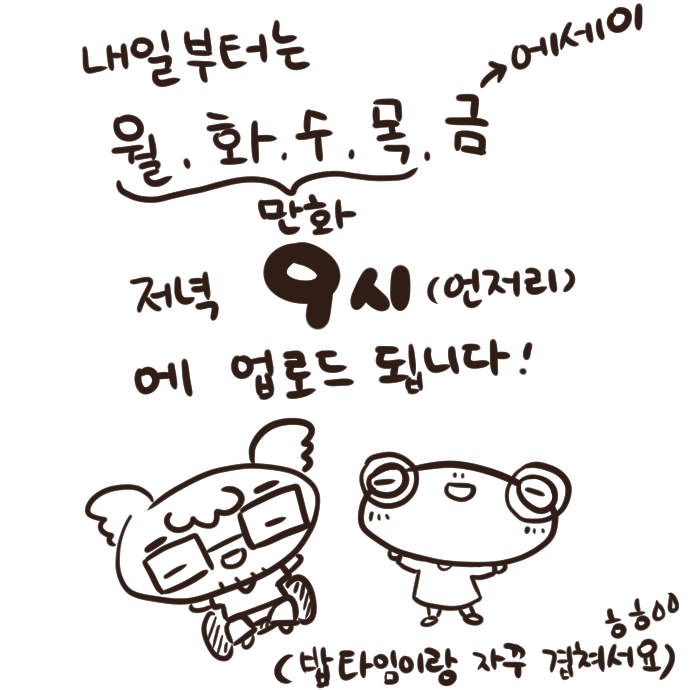 내일부터는
→에세이
월.화.수.목.금
만화
저녁 9시 (언저리)
에 업로드 됩니다!
ㅎㅎ00
(밥타임이랑 자꾸 겹쳐서요)